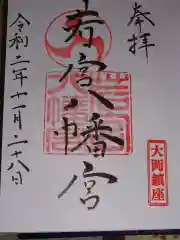 奉拝
若宮八幡宮
令和二年十一月二十八日
大岡鎮座